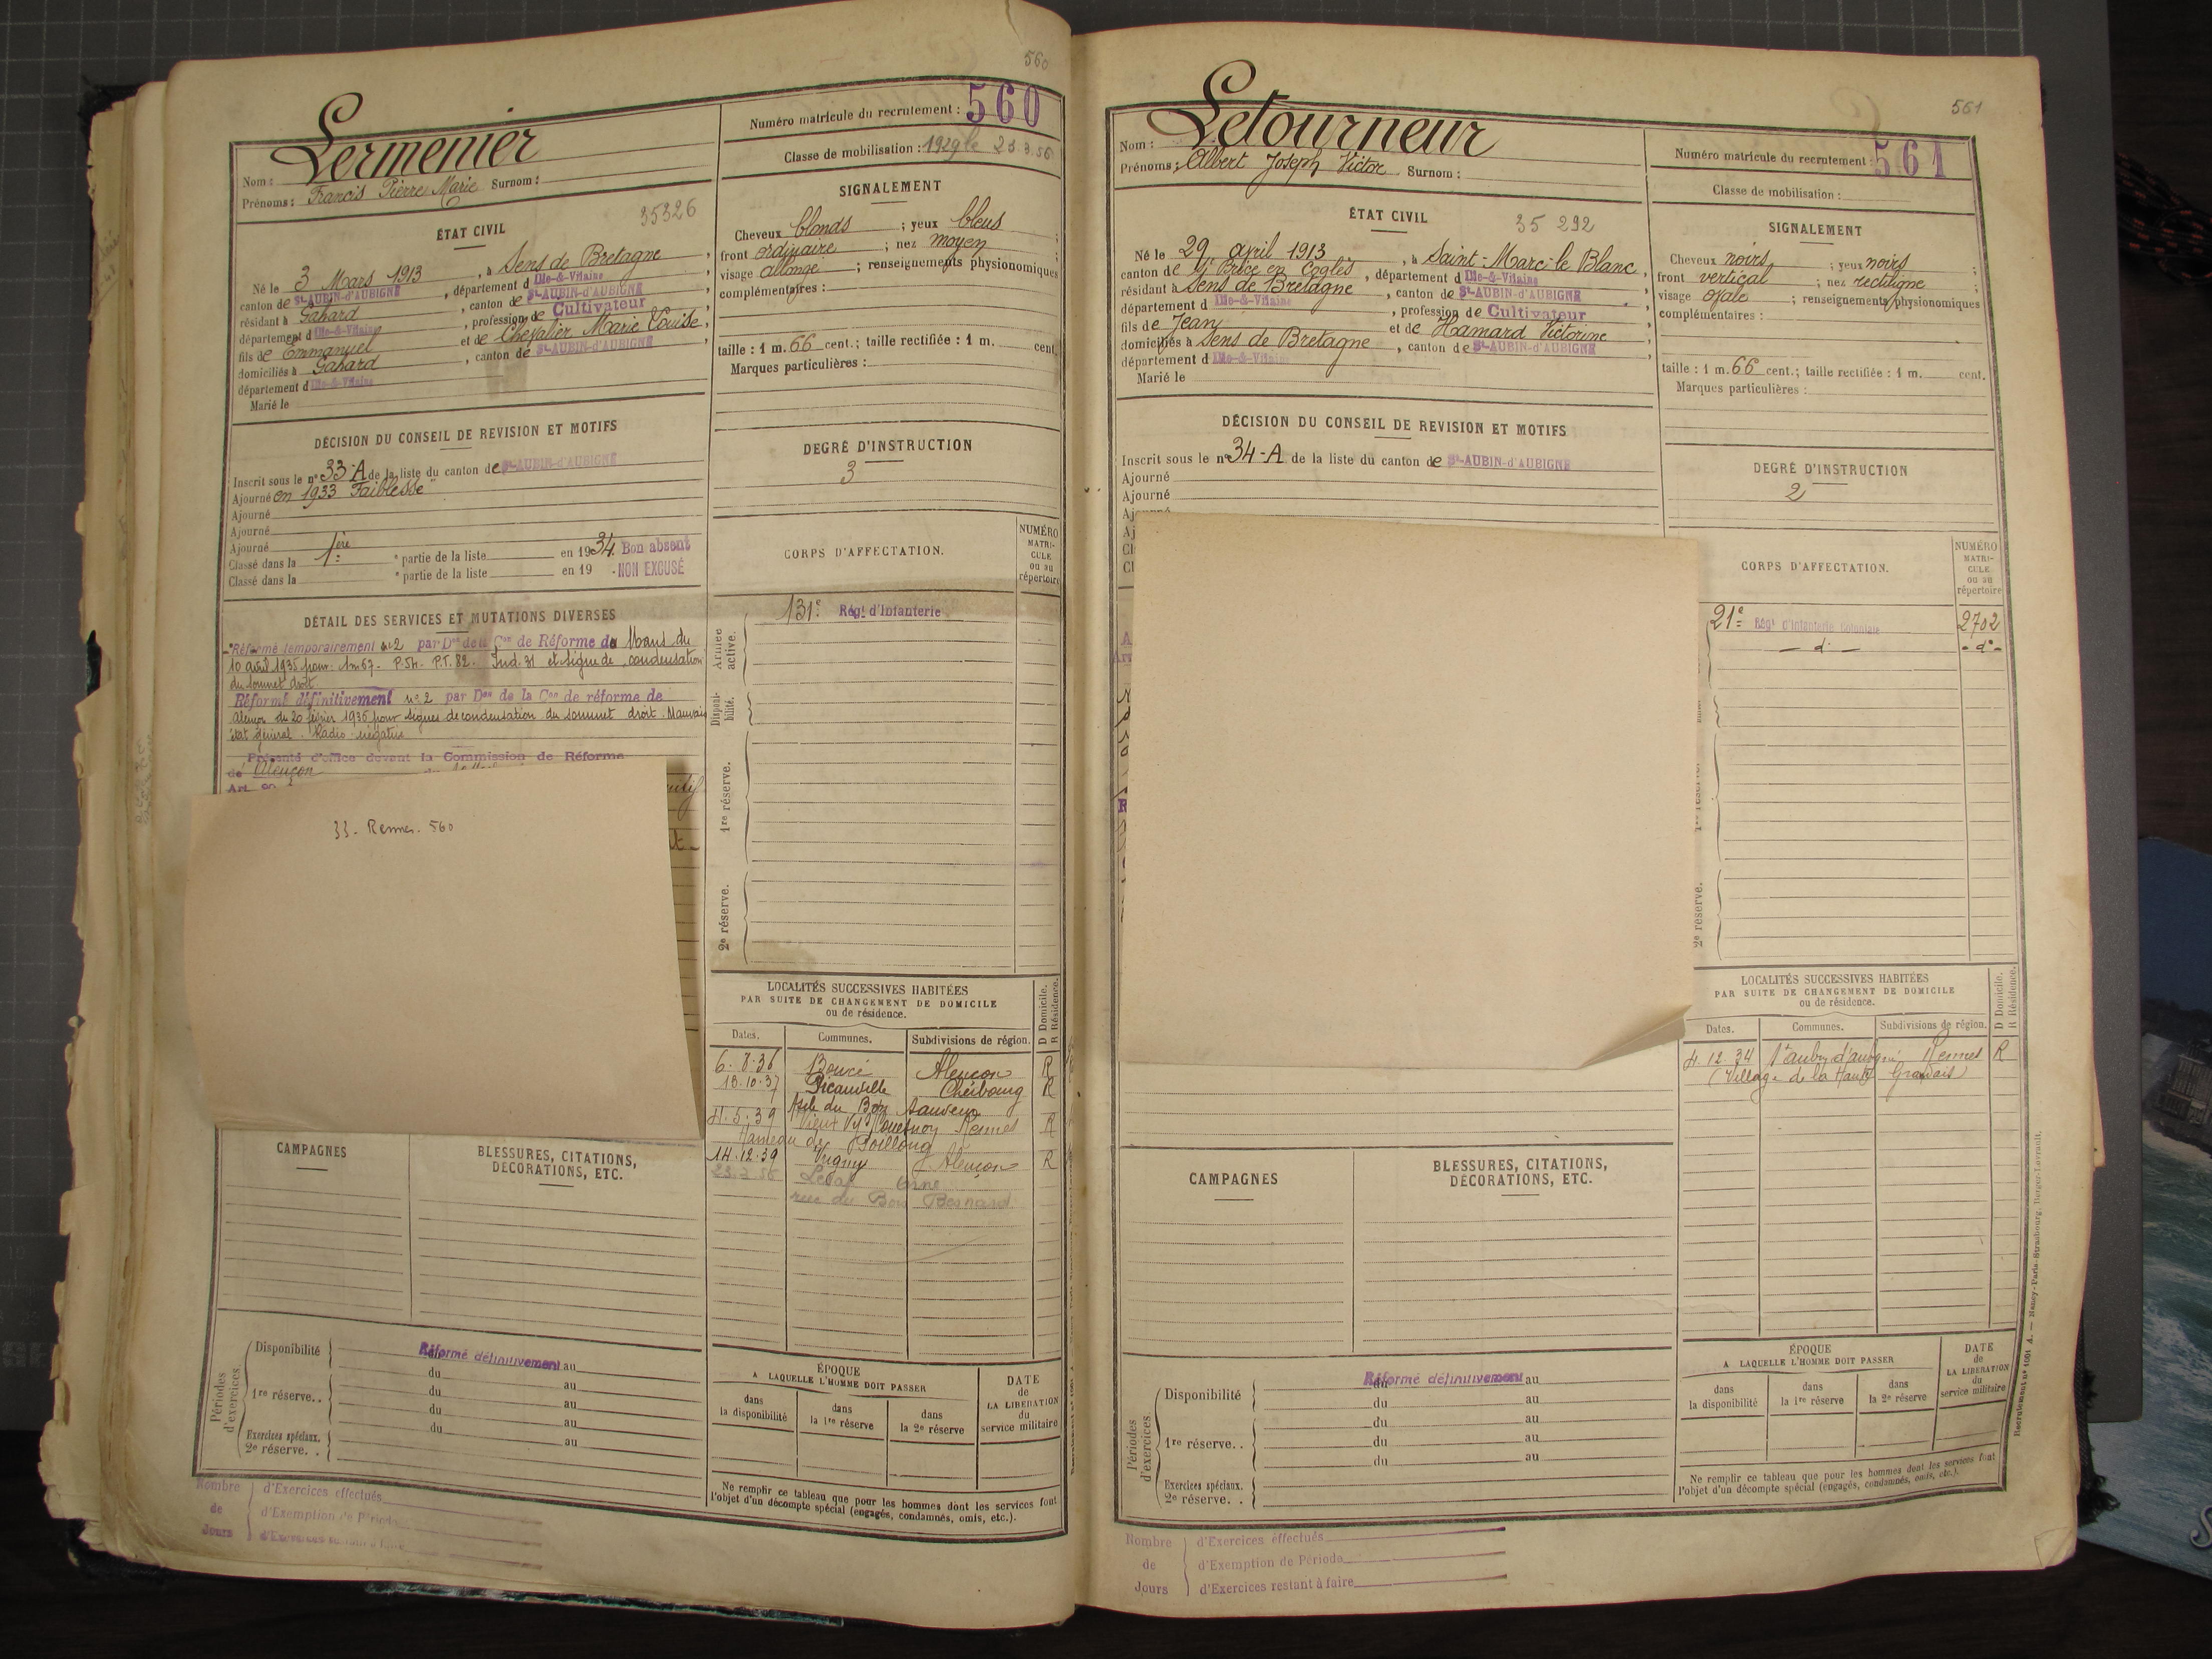 560
Lermenier
Nom :
Prénoms : Francis Pierre Marie Surnom :
Numéro matricule du recrutement : 560
Classe de mobilisation : 1929 le 23.3.56
ÉTAT CIVIL
35326
Né le 3 Mars 1913, à Sens de Bretagne,
canton de St-AUBIN-d'AUBIGNÉ, département d Ille-&-Vilaine
résidant à Gahard, canton de St-AUBIN-d'AUBIGNÉ,
département d Ille-&-Vilaine, profession de Cultivateur
fils de Emmanuel et de Chevalier Marie Louise,
domiciliés à Gahard, canton de St-AUBIN-d'AUBIGNÉ,
département d Ille-&-Vilaine
Marié le
SIGNALEMENT
Cheveux blonds ; yeux bleus ;
front ordinaire ; nez moyen ;
visage allongé ; renseignements physionomiques
complémentaires :
taille : 1 m. 66 cent. ; taille rectifiée : 1 m. cent.
Marques particulières :
DÉCISION DU CONSEIL DE REVISION ET MOTIFS
Inscrit sous le n° 33-A de la liste du canton de St-AUBIN-d'AUBIGNÉ
Ajourné en 1933 Faiblesse
Ajourné
Ajourné
Ajourné
Classé dans la 1ère e partie de la liste en 1934. Bon absent
Classé dans la e partie de la liste en 19 . NON EXCUSÉ
DEGRÉ D'INSTRUCTION
3
DÉTAIL DES SERVICES ET MUTATIONS DIVERSES
Réformé temporairement n°2 par Don de la Con de Réforme du Mans du
10 avril 1935 pour : 1m67 - P.54 - P.T. 82 - Ind. 31 et signe de condensation
du sommet droit.
Réformé définitivement n°2 par Don de la Con de réforme de
Alençon du 20 février 1936 pour signes de condensation du sommet droit. Mauvais
état général. Radio négative
Présenté d'office devant la Commission de Réforme
de Alençon
Art.
33. Rennes. 560
CORPS D'AFFECTATION.
NUMÉRO MATRICULE ou au répertoire
Armée active.
131e Régt d'Infanterie
Disponibilité.
1re réserve.
2e réserve.
LOCALITÉS SUCCESSIVES HABITÉES
PAR SUITE DE CHANGEMENT DE DOMICILE
ou de résidence.
D Domicile.
R Résidence.
Dates. Communes. Subdivisions de région.
6.8.36 Boucé Alençon R
18.10.37 Picauville Cherbourg R
Asile du Bon Sauveur
4.5.39 Vieux Vy s/ Couesnon Rennes R
Hameau de
14.12.39 Alençon R
Orne
rue du Bois Besnard
CAMPAGNES
BLESSURES, CITATIONS, DÉCORATIONS, ETC.
Périodes d'exercices.
Disponibilité Réformé définitivement au
du au
1re réserve.. du au
du au
Exercices spéciaux. du au
2e réserve. . au
ÉPOQUE
A LAQUELLE L'HOMME DOIT PASSER
dans la disponibilité
dans la 1re réserve
dans la 2e réserve
DATE de LA LIBÉRATION du service militaire
Ne remplir ce tableau que pour les hommes dont les services font
l'objet d'un décompte spécial (engagés, condamnés, omis, etc.).
Nombre de Jours
d'Exercices effectués
d'Exemption de Période
d'Exercices restant à faire
561
Letourneur
Nom :
Prénoms : Albert Joseph Victor Surnom :
Numéro matricule du recrutement : 561
Classe de mobilisation :
ÉTAT CIVIL
35 292
Né le 29 avril 1913, à Saint-Marc-le Blanc,
canton de St Brice en Coglès, département d Ille-&-Vilaine
résidant à Sens de Bretagne, canton de St-AUBIN-d'AUBIGNÉ
département d Ille-&-Vilaine, profession de Cultivateur
fils de Jean et de Hamard Victorine
domiciliés à Sens de Bretagne, canton de St-AUBIN-d'AUBIGNÉ,
département d Ille-&-Vilaine
Marié le
SIGNALEMENT
Cheveux noirs ; yeux noirs ;
front vertical ; nez rectiligne ;
visage ovale ; renseignements physionomiques
complémentaires :
taille : 1 m. 66 cent. ; taille rectifiée : 1 m. cent.
Marques particulières :
DÉCISION DU CONSEIL DE REVISION ET MOTIFS
Inscrit sous le n° 34-A de la liste du canton de St-AUBIN-d'AUBIGNÉ
Ajourné
Ajourné
DEGRÉ D'INSTRUCTION
2
CORPS D'AFFECTATION.
NUMÉRO MATRICULE ou au répertoire
21e Régt d'Infanterie Coloniale 2702
- d° - - d° -
2e réserve.
LOCALITÉS SUCCESSIVES HABITÉES
PAR SUITE DE CHANGEMENT DE DOMICILE
ou de résidence.
D Domicile.
R Résidence.
Dates. Communes. Subdivisions de région.
4.12.34 St aubin d'aubigné Rennes R
(Village de la Haute Grandais)
CAMPAGNES
BLESSURES, CITATIONS, DÉCORATIONS, ETC.
Périodes d'exercices.
Disponibilité Réformé définitivement au
du au
du au
1re réserve.. du au
du au
Exercices spéciaux.
2e réserve. .
ÉPOQUE
A LAQUELLE L'HOMME DOIT PASSER
dans la disponibilité
dans la 1re réserve
dans la 2e réserve
DATE de LA LIBÉRATION du service militaire
Ne remplir ce tableau que pour les hommes dont les services font
l'objet d'un décompte spécial (engagés, condamnés, omis, etc.).
Recrutement n° 1001 A. — Nancy-Paris-Strasbourg, Berger-Levrault.
Nombre de Jours
d'Exercices effectués
d'Exemption de Période
d'Exercices restant à faire